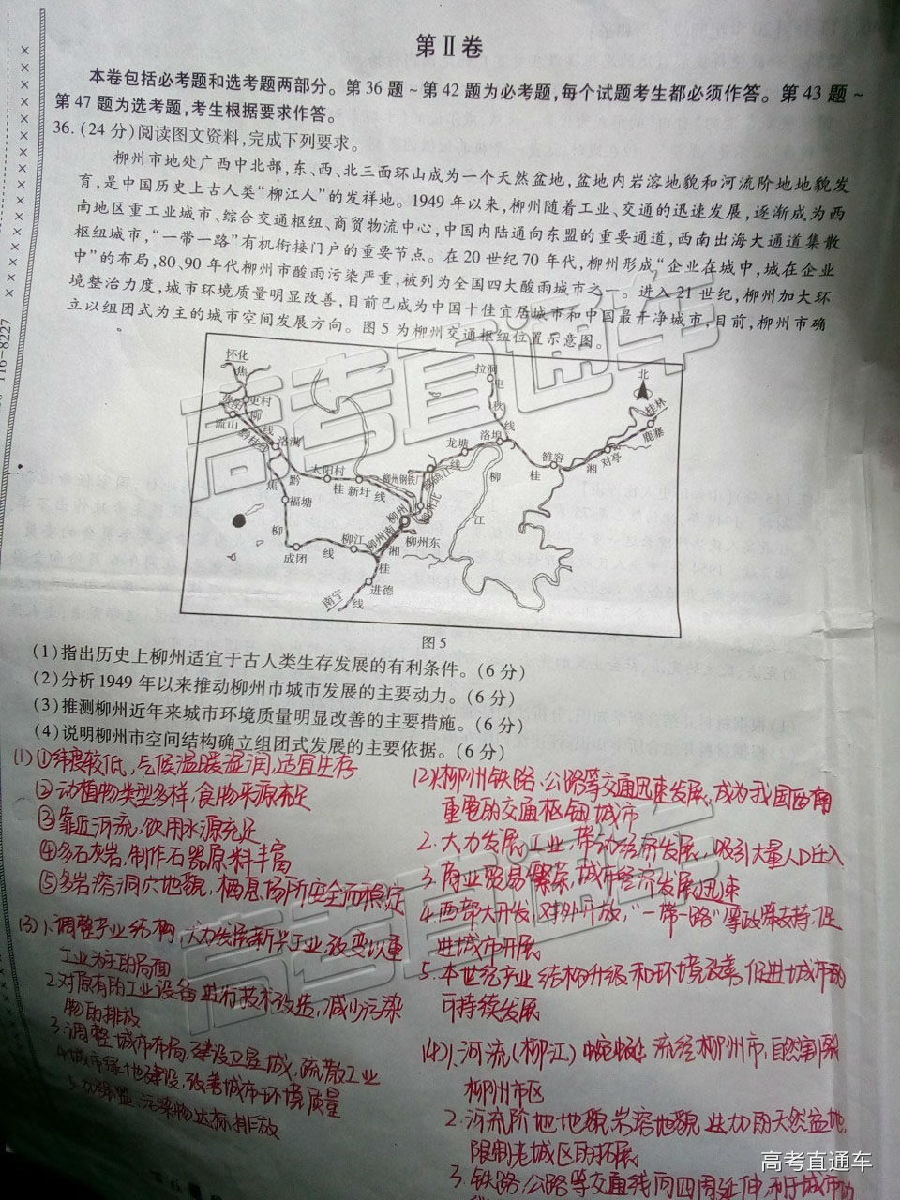 第Ⅱ卷
本卷包括必考题和选考题两部分。第36题~第42题为必考题,每个试题考生都必须作答。第43题~
第47题为选考题,考生根据要求作答。
36.(24分)阅读图文资料,完成下列要求。
柳州市地处广西中北部,东、西、北三面环山成为一个天然盆地,盆地内岩溶地貌和河流阶地地貌发
育,是中国历史上古人类“柳江人”的发祥地。1949年以来,柳州随着工业、交通的迅速发展,逐渐成为西
南地区重工业城市、综合交通枢纽、商贸物流中心,中国内陆通向东盟的重要通道,西南出海大通道集散
枢纽城市,“一带一路”有机衔接门户的重要节点。在20世纪70年代,柳州形成“企业在城中,城在企业
中”的布局,80、90年代柳州市酸雨污染严重,被列为全国四大酸雨城市之一。进入21世纪,柳州加大环
境整治力度,城市环境质量明显改善,目前已成为中国十佳宜居城市和中国最干净城市,目前,柳州市确
立以组团式为主的城市空间发展方向。图5为柳州交通枢纽位置示意图。
116-8227
怀化
焦
更村
柳
线
流山
洛满
黔
太阳村
桂
新圩
线
柳州钢铁厂
柳州北
柳州
柳州南
柳州东
焦
福塘
柳
成团
线
柳江
湘
桂
进德
线
南宁
拉洞
北
龙塘
洛埠
线
柳
江
桂
雒容
湘
对亭
鹿寨
桂林
图5
(1)指出历史上柳州适宜于古人类生存发展的有利条件。(6分)
(2)分析1949年以来推动柳州市城市发展的主要动力。(6分)
(3)推测柳州近年来城市环境质量明显改善的主要措施。(6分)
(4)说明柳州市空间结构确立组团式发展的主要依据。(6分)
(1)①纬度较低,气候温暖湿润,适宜生存
②动植物类型多样,食物来源充足
③靠近河流,饮用水源充足
④多石灰岩,制作石器原料丰富
⑤多岩溶洞穴地貌,栖息场所安全而稳定
(2)1.柳州铁路、公路等交通迅速发展,成为我国西南
重要的交通枢纽城市
2.大力发展工业,带动经济发展,吸引大量人口迁入
3.商业贸易繁荣,城市经济发展迅速
4.西部大开发,对外开放,“一带一路”等政策支持,促
进城市开展
5.本世纪产业结构升级和环境改善,促进城市的
可持续发展
(3)1.调整产业结构,大力发展新兴工业,改变以重
工业为主的局面
2.对原有的工业设备进行技术改造,减少污染
物的排放
3.调整城市布局,建设卫星城,疏散工业
4.城市绿地建设,改善城市环境质量
5.加强监,污染物达标排放
(4)1.河流(柳江)蜿蜒流经柳州市,自然割裂
柳州市区
2.河流阶地地貌,岩溶地貌,进力的天然盆地,
限制老城区的拓展
3.铁路、公路等交通线向四周延伸,利于城市的
高考直通车
高考直通车
高考直通车